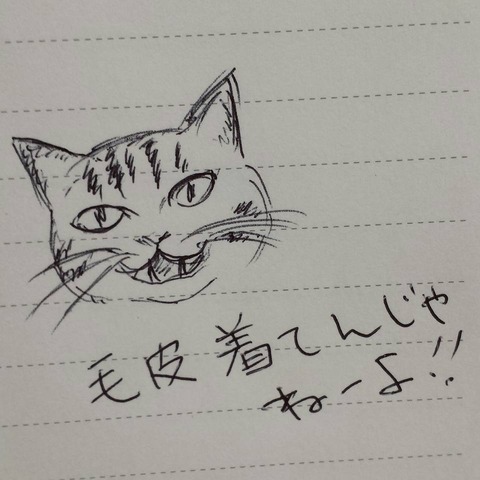 毛皮着てんじゃ
ねーよ!!